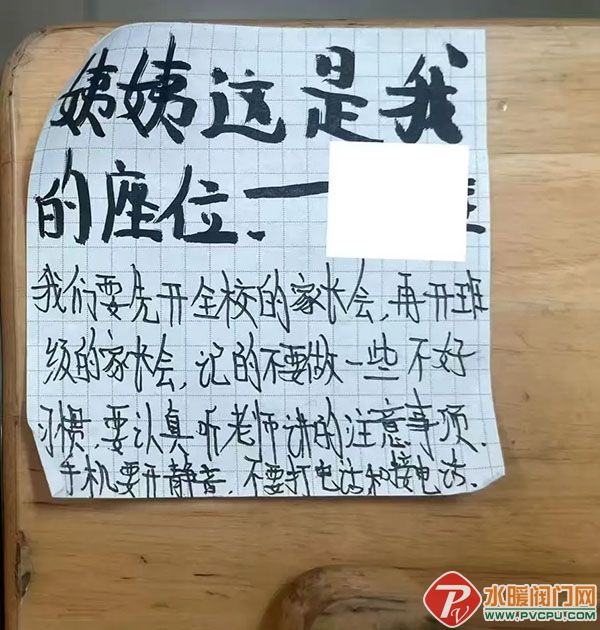 姨姨这是我
的座位、一
我们要先开全校的家长会,再开班
级的家长会,记的不要做一些不好
习惯,要认真听老师讲的注意事项.
手机要开静音,不要打电话和接电话.
水暖阀门网
WWW.PVCPU.COM